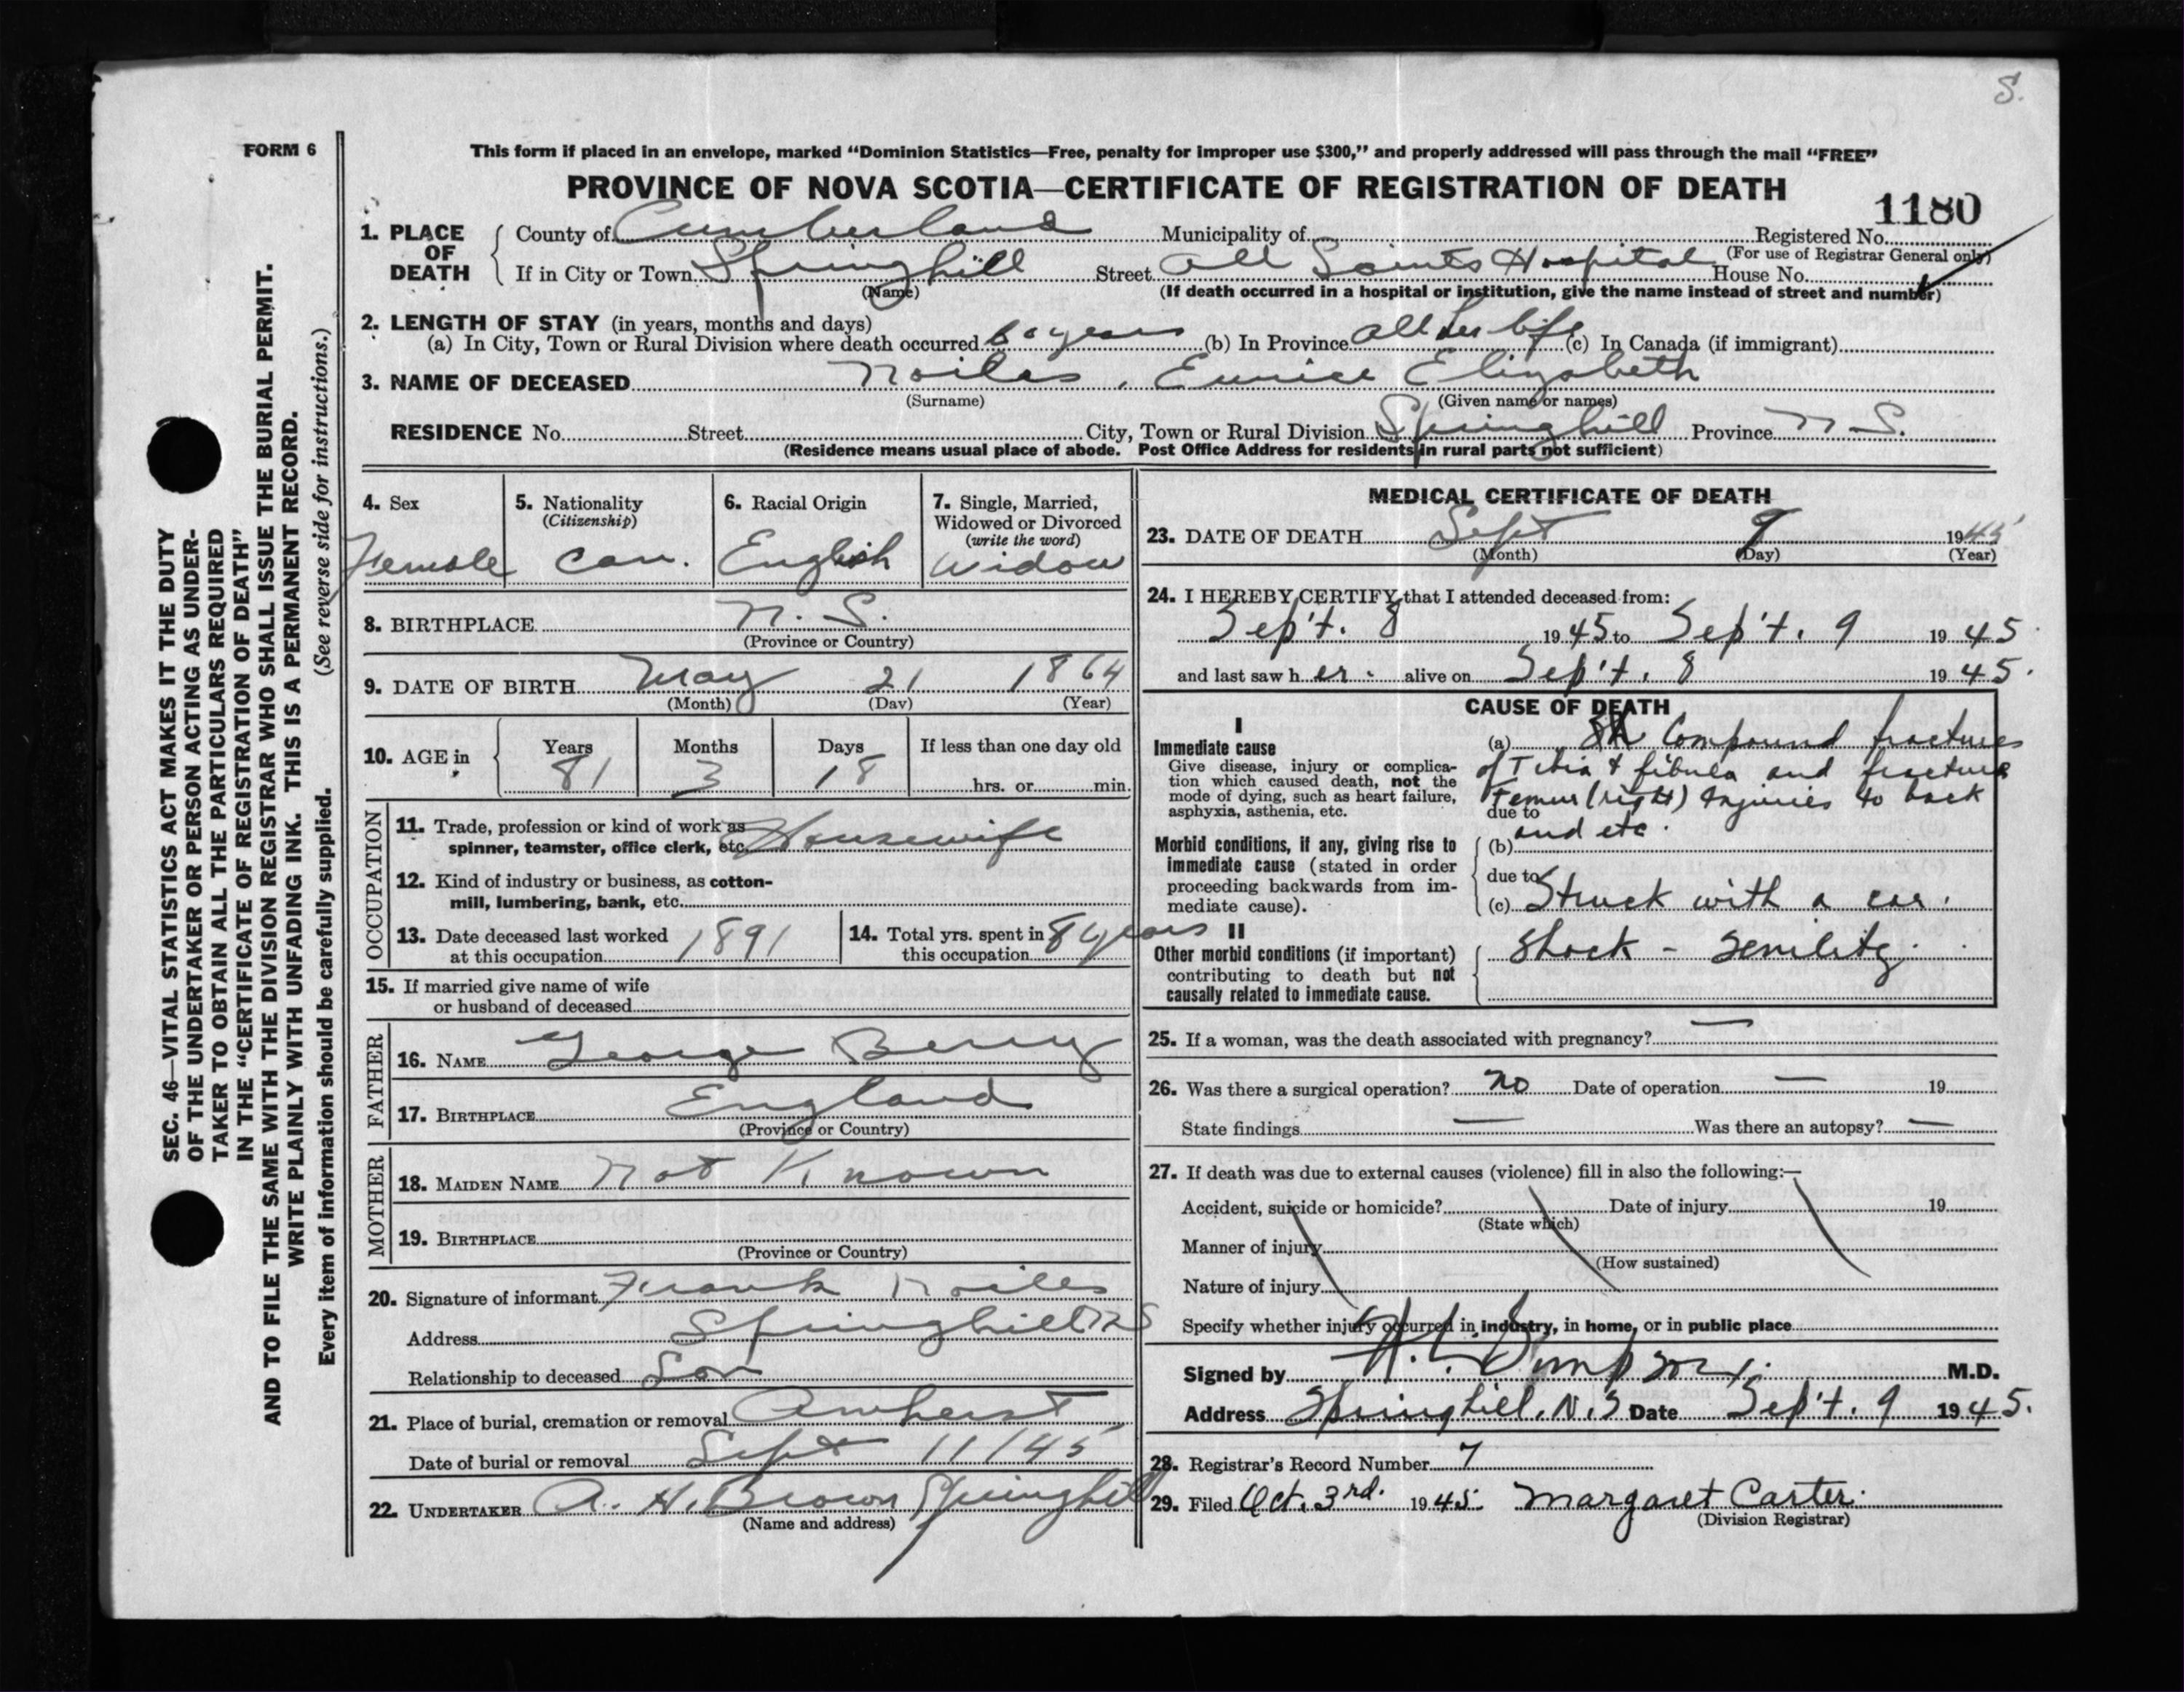 S.
FORM 6
This form if placed in an envelope, marked “Dominion Statistics—Free, penalty for improper use $300,” and properly addressed will pass through the mail “FREE”
PROVINCE OF NOVA SCOTIA—CERTIFICATE OF REGISTRATION OF DEATH
1180
1. PLACE OF DEATH
County of Cumberland Municipality of Registered No.
(For use of Registrar General only)
If in City or Town Springhill Street All Saints Hospital House No.
(Name) (If death occurred in a hospital or institution, give the name instead of street and number)
2. LENGTH OF STAY (in years, months and days)
(a) In City, Town or Rural Division where death occurred 60 years (b) In Province all her life (c) In Canada (if immigrant)
3. NAME OF DECEASED Noiles, Eunice Elizabeth
(Surname) (Given name or names)
RESIDENCE No. Street City, Town or Rural Division Springhill Province N S.
(Residence means usual place of abode. Post Office Address for residents in rural parts not sufficient)
4. Sex
Female
5. Nationality
(Citizenship)
Can.
6. Racial Origin
English
7. Single, Married,
Widowed or Divorced
(write the word)
Widow
8. BIRTHPLACE N. S.
(Province or Country)
9. DATE OF BIRTH May 21 1864
(Month) (Day) (Year)
10. AGE in
Years Months Days If less than one day old
81 3 18 hrs. or min.
OCCUPATION
11. Trade, profession or kind of work as
spinner, teamster, office clerk, etc. Housewife
12. Kind of industry or business, as cotton-
mill, lumbering, bank, etc.
13. Date deceased last worked
at this occupation 1891
14. Total yrs. spent in
this occupation 8 years
15. If married give name of wife
or husband of deceased
FATHER
16. NAME George Berry
17. BIRTHPLACE England
(Province or Country)
MOTHER
18. MAIDEN NAME Not Known
19. BIRTHPLACE
(Province or Country)
20. Signature of informant Frank Noiles
Address Springhill N S
Relationship to deceased Son
21. Place of burial, cremation or removal Amherst
Date of burial or removal Sept 11/45
22. UNDERTAKER A. H. Brown Springhill
(Name and address)
MEDICAL CERTIFICATE OF DEATH
23. DATE OF DEATH Sept 9 1945
(Month) (Day) (Year)
24. I HEREBY CERTIFY that I attended deceased from:
Sep't. 8 1945 to Sep't. 9 1945
and last saw her alive on Sep't. 8 1945.
CAUSE OF DEATH
I
Immediate cause
Give disease, injury or complica-
tion which caused death, not the
mode of dying, such as heart failure,
asphyxia, asthenia, etc.
(a) Compound fractures
of Tibia & fibula and fracture
Femur (right) Injuries to back
due to
and etc.
Morbid conditions, if any, giving rise to
immediate cause (stated in order
proceeding backwards from im-
mediate cause).
(b)
due to
(c) Struck with a car.
II
Other morbid conditions (if important)
contributing to death but not
causally related to immediate cause.
Shock - Senility.
25. If a woman, was the death associated with pregnancy? —
26. Was there a surgical operation? no Date of operation — 19
State findings — Was there an autopsy? —
27. If death was due to external causes (violence) fill in also the following:—
Accident, suicide or homicide? Date of injury 19
(State which)
Manner of injury
(How sustained)
Nature of injury
Specify whether injury occurred in industry, in home, or in public place
Signed by M.D.
Address Springhill, N.S Date Sep't. 9 1945.
28. Registrar's Record Number 7
29. Filed Oct. 3rd. 1945. Margaret Carter.
(Division Registrar)
SEC. 46—VITAL STATISTICS ACT MAKES IT THE DUTY
OF THE UNDERTAKER OR PERSON ACTING AS UNDER-
TAKER TO OBTAIN ALL THE PARTICULARS REQUIRED
IN THE “CERTIFICATE OF REGISTRATION OF DEATH”
AND TO FILE THE SAME WITH THE DIVISION REGISTRAR WHO SHALL ISSUE THE BURIAL PERMIT.
WRITE PLAINLY WITH UNFADING INK. THIS IS A PERMANENT RECORD.
Every item of information should be carefully supplied. (See reverse side for instructions.)